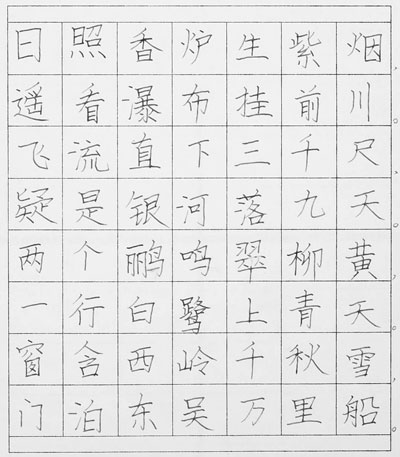 日照香炉生紫烟，
遥看瀑布挂前川。
飞流直下三千尺，
疑是银河落九天。
两个鹂鸣翠柳黄，
一行白鹭上青天。
窗含西岭千秋雪，
门泊东吴万里船。